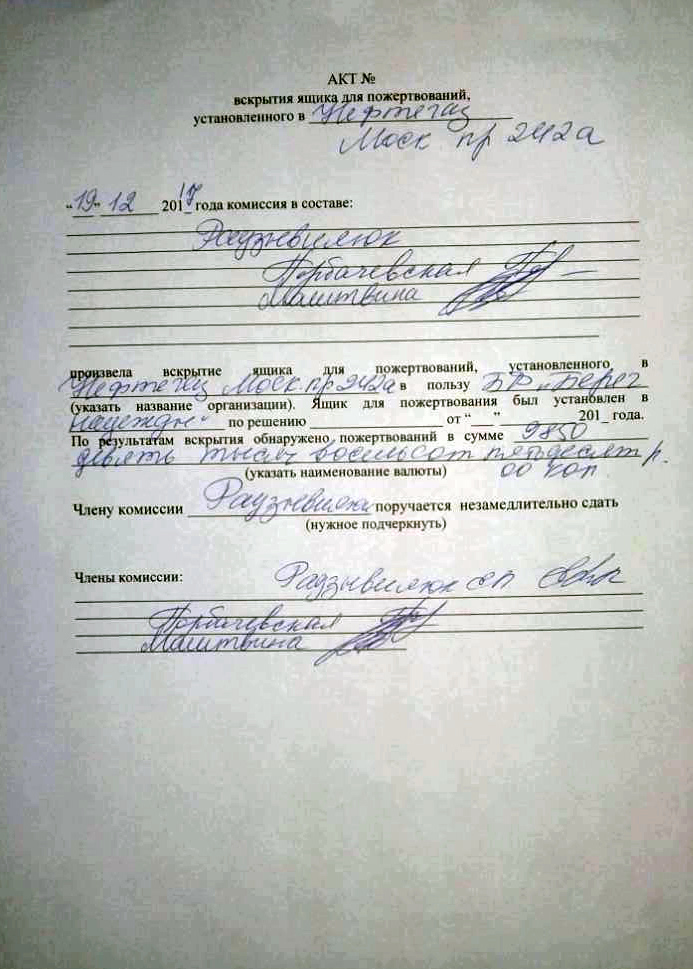 АКТ №
вскрытия ящика для пожертвований,
установленного в Нефтегаз
Моск пр 242а
“19” 12 2017 года комиссия в составе:
Радзывилюк
Горбачевская
Малитвина
произвела вскрытие ящика для пожертвований, установленного в
Нефтегаз Моск. пр 242а в пользу БФ „Берег
(указать название организации). Ящик для пожертвования был установлен в
надежды“ по решению от “ ” 201_ года.
По результатам вскрытия обнаружено пожертвований в сумме 9850
девять тысяч восемьсот пятьдесят р.
(указать наименование валюты) 00 коп
Члену комиссии Радзывилюк поручается незамедлительно сдать
(нужное подчеркнуть)
Члены комиссии: Радзывилюк
Горбачевская
Малитвина